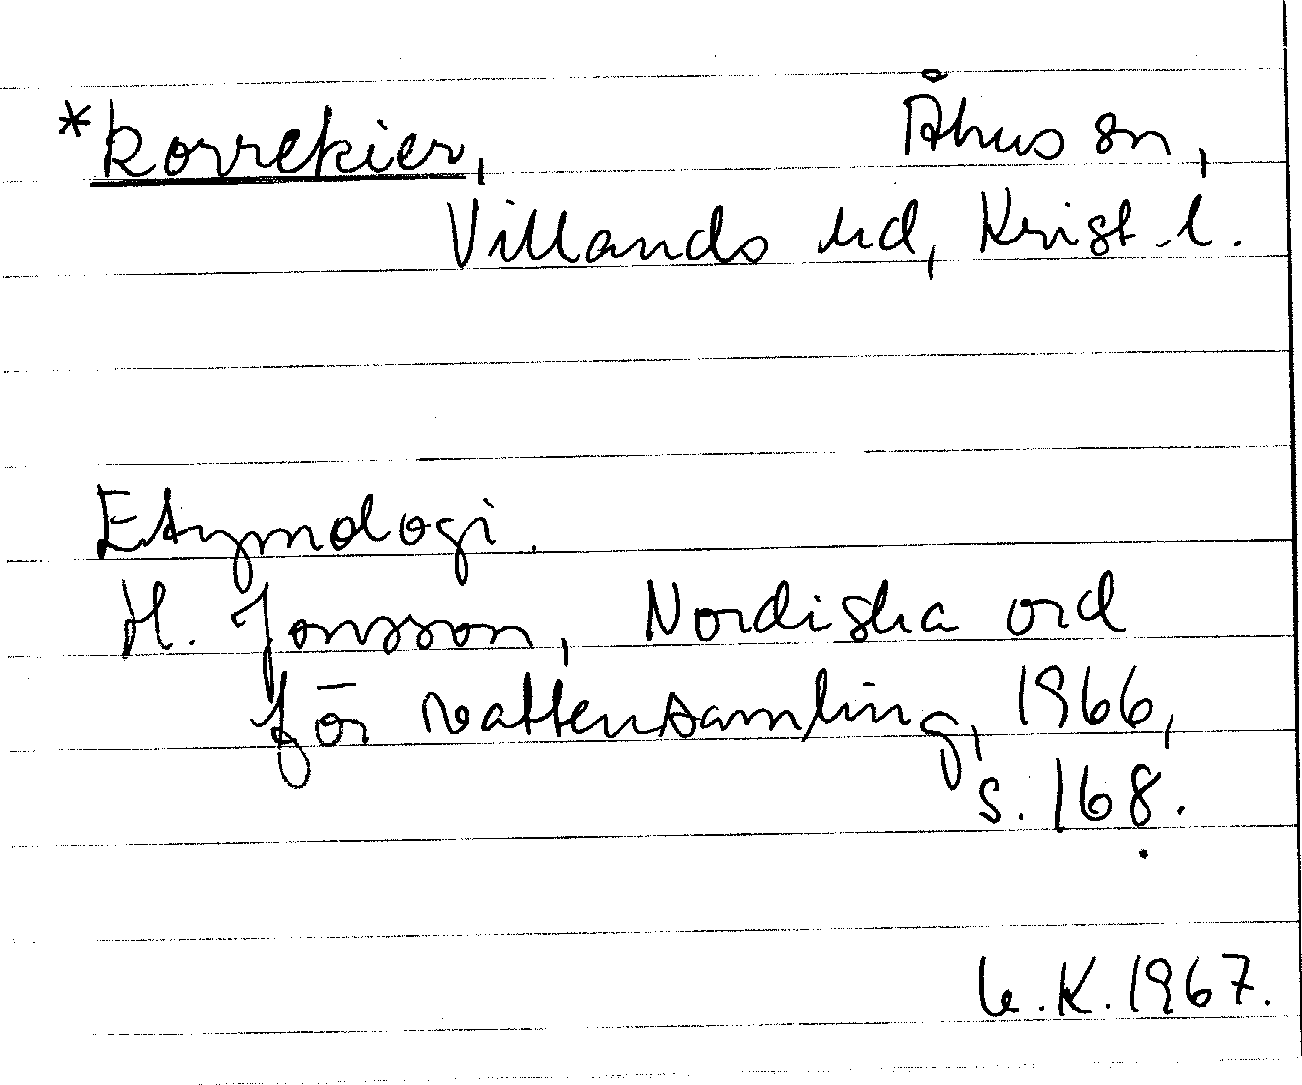 *korrekier, Åhus sn,
Villands hd, Krist. l.
Etymologi.
H. Jonsson, Nordiska ord
för vattensamling, 1966,
s. 168.
K. 1967.